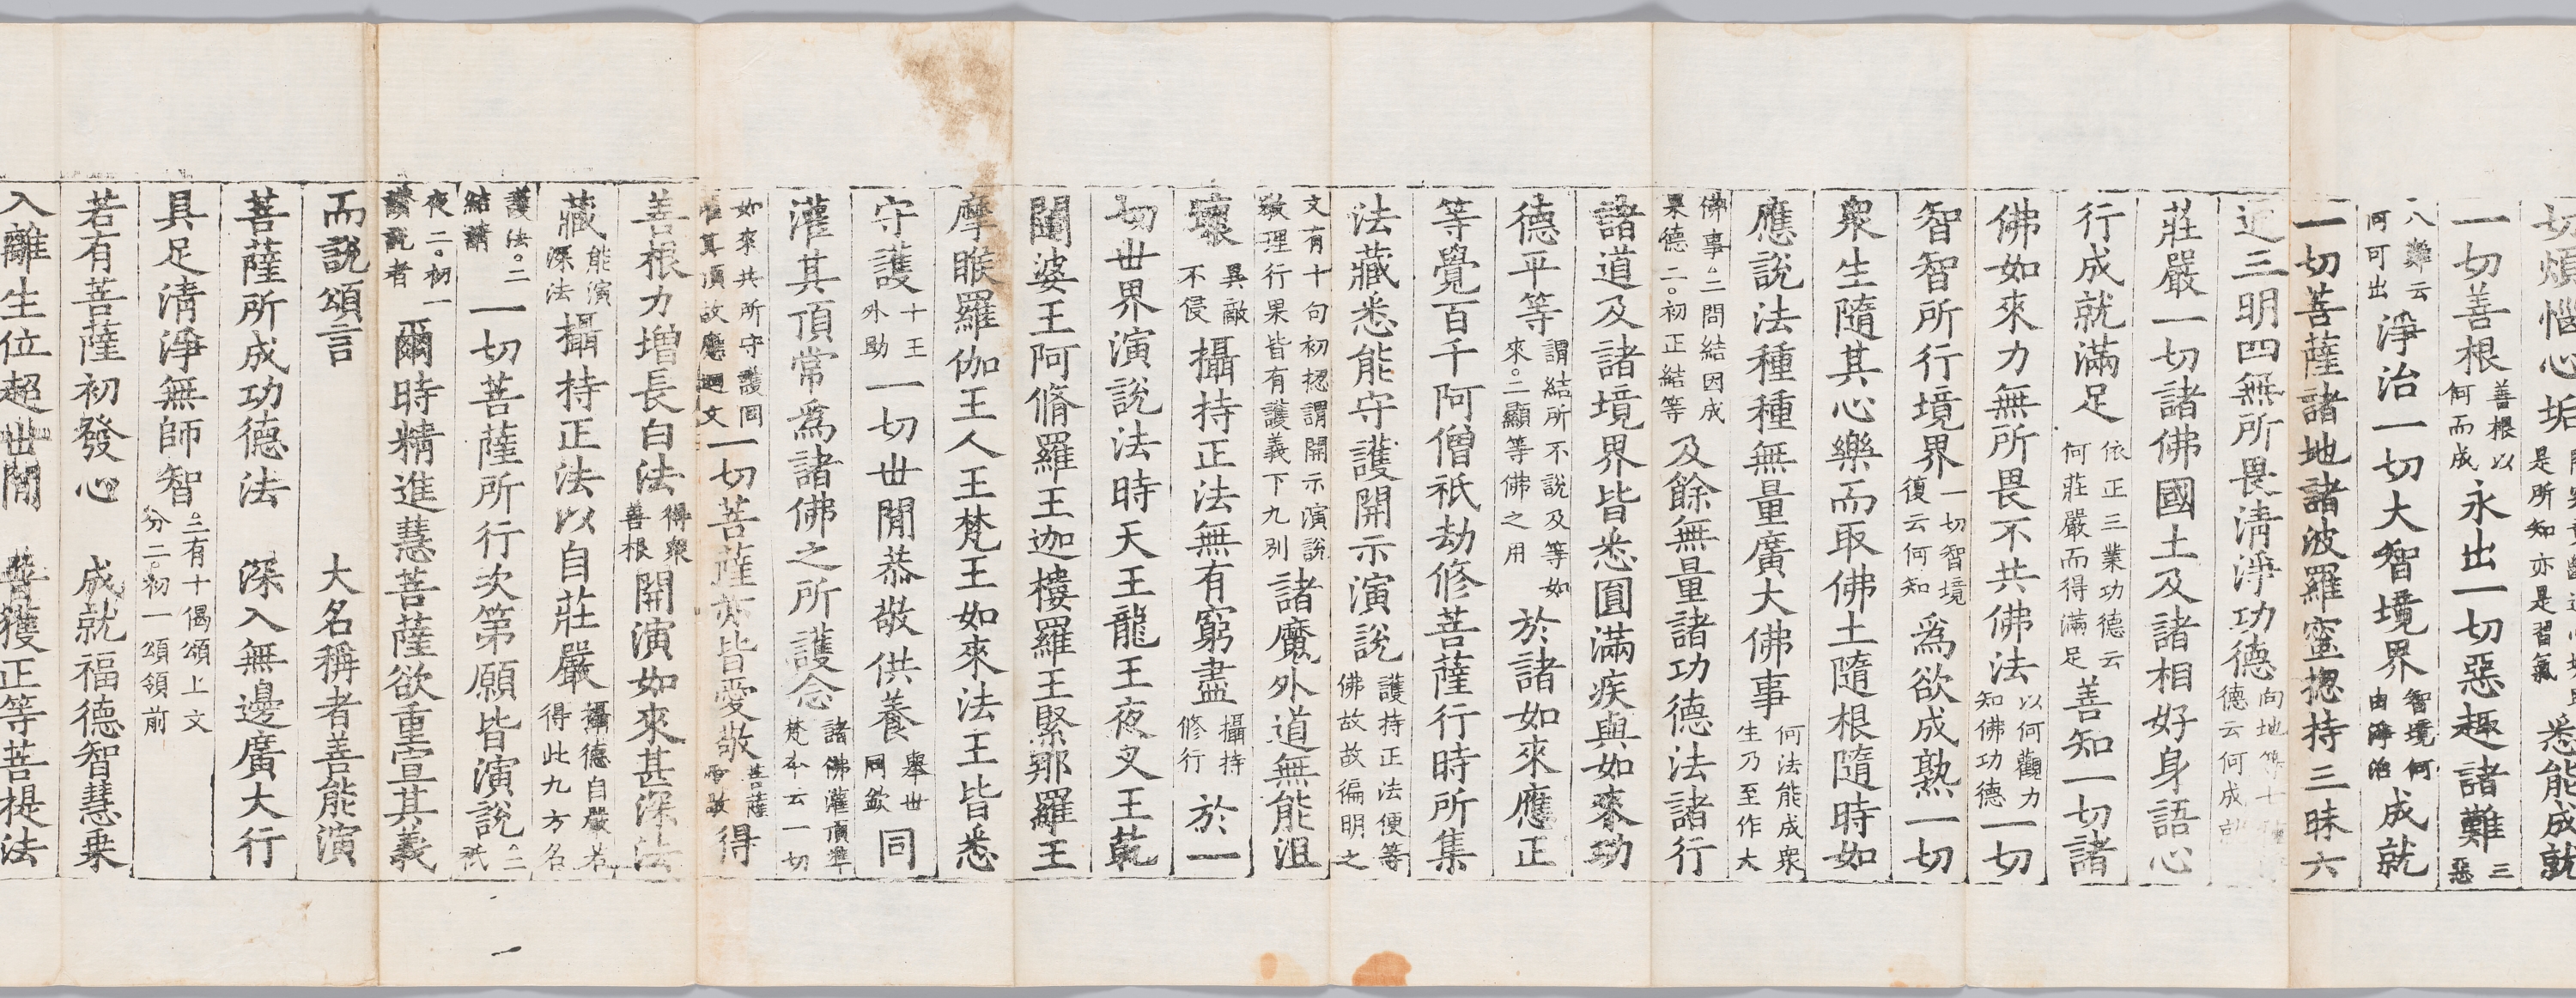 切煩惱心垢是所知亦是習氣悉能成就
一切善根善根以何而成永出一切惡趣諸難三惡
八難云何可出淨治一切大智境界智境何由淨治成就
一切菩薩諸地諸波羅蜜揔持三昧六
三明四無所畏清淨功德德云何成
莊嚴一切諸佛國土及諸相好身語心
行成就滿足依正三業功德云何莊嚴而得滿足善知一切諸
佛如來力無所畏不共佛法以何觀力知佛功德一切
智智所行境界一切智境復云何知爲欲成熟一切
衆生隨其心樂而取佛土隨根隨時如
應說法種種無量廣大佛事何法能成衆生乃至作大
佛事。二問結因成果德二。初正結等及餘無量諸功德法諸行
諸道及諸境界皆悉圓滿疾與如來功
德平等謂結所不說及等如來。二顯等佛之用於諸如來應正
等覺百千阿僧祇劫修菩薩行時所集
法藏悉能守護開示演說護持正法便等佛故故徧明之
文有十句初揔謂開示演說教理行果皆有護義下九別諸魔外道無能沮
壞異敵不侵攝持正法無有窮盡攝持修行於一
切世界演說法時天王龍王夜叉王乾
闥婆王阿脩羅王迦樓羅王緊那羅王
摩睺羅伽王人王梵王如來法王皆悉
守護十王外助一切世閒恭敬供養舉世同欽同
灌其頂常爲諸佛之所護念諸佛灌頂準梵本云一切
如來共所守護同灌其頂故應迴文一切菩薩亦皆愛敬菩薩得
善根力增長白法得衆善根開演如來甚深法
藏能演深法攝持正法以自莊嚴攝德自嚴若得此九方名
護法。二結請一切菩薩所行次第願皆演說。二祇
夜二。初一讚說者爾時精進慧菩薩欲重宣其義
而說頌言　大名稱者善能演
菩薩所成功德法　深入無邊廣大行
具足清淨無師智。二有十偈頌上文分二。初一頌領前
若有菩薩初發心　成就福德智慧乗
入離生位超世閒　普獲正等菩提法